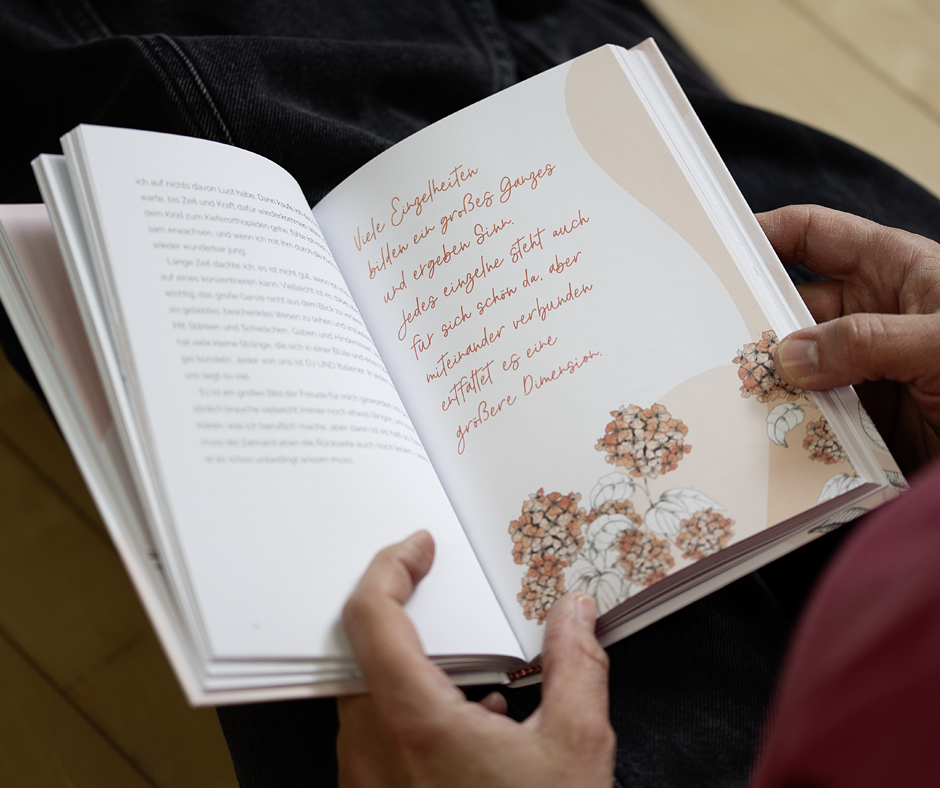 ich auf nichts davon Lust habe. Dann kaufe ich
warte, bis Zeit und Kraft dafür wiederkommen.
dem Kind zum Kieferorthopäden gehe, fühle ich mich
sam erwachsen, und wenn ich mit ihm durch die
wieder wunderbar jung.
Lange Zeit dachte ich, es ist nicht gut, wenn ich
auf eines konzentrieren kann. Vielleicht ist es dabei
wichtig, das große Ganze nicht aus dem Blick zu
als geliebtes, beschenktes Wesen zu sehen und
Mit Stärken und Schwächen, Gaben und
hat viele kleine Stränge, die sich in einer Blüte und
gel bündeln. Jeder von uns ist DJ UND Italiener. In jedem
uns liegt so viel.
Es ist ein großes Bild der Freude für mich geworden
vielleicht immer noch etwas länger, um
was ich beruflich mache, aber dann ist es halt so.
muss der Zahnarzt eben die Rückseite auch noch
er es schon unbedingt wissen muss.
Viele Einzelheiten
bilden ein großes Ganzes
und ergeben Sinn.
Jedes einzelne steht auch
für sich schön da, aber
miteinander verbunden
entfaltet es eine
größere Dimension.